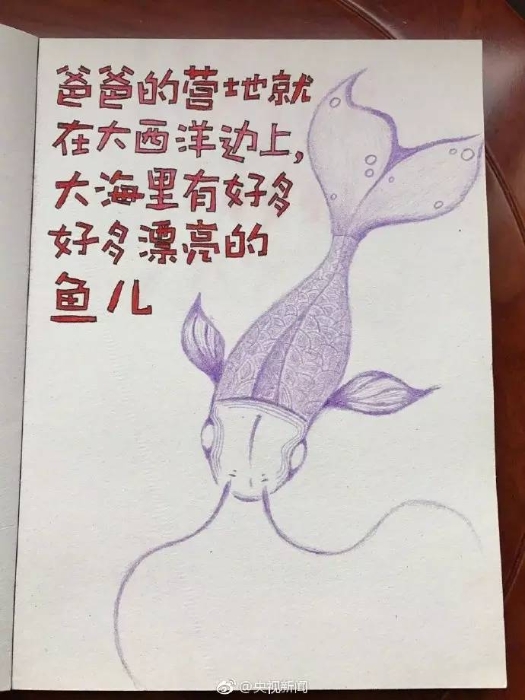 爸爸的营地就
在大西洋边上，
大海里有好多
好多漂亮的
鱼儿
@央视新闻